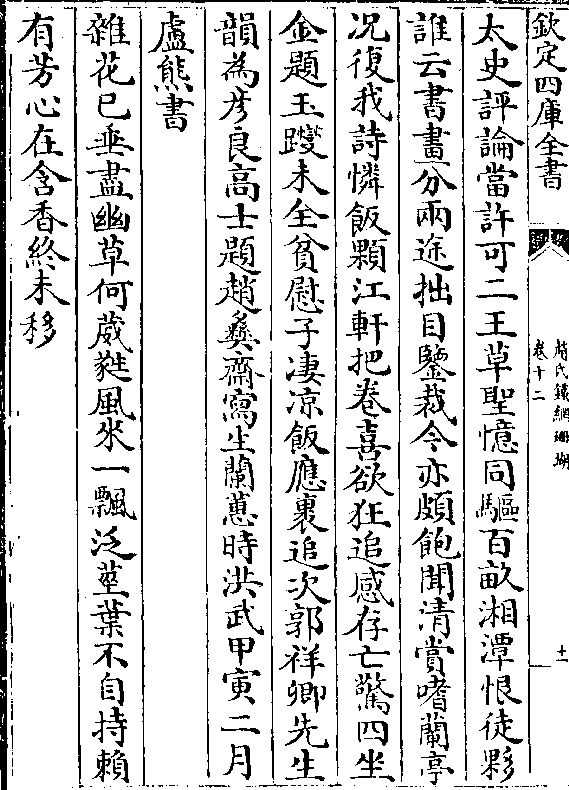 欽定四庫全書
趙氏鐵網珊瑚
卷十二
十一
太史評論當許可二王草聖憶同驅百畝湘潭恨徒夥
誰云書畫分兩途拙目鑒裁今亦頗飽聞清賞嗜蘭亭
况復我詩憐飯顆江軒把卷喜欲狂追感存亡驚四坐
金題玉躞未全貧慰子凄凉飯應裹追次郭祥卿先生
韻為彥良高士題趙彝齋寫生蘭蕙時洪武甲寅二月
盧熊書
雜花已垂盡幽草何葳蕤風來一飄泛莖葉不自持賴
有芳心在含香終未移